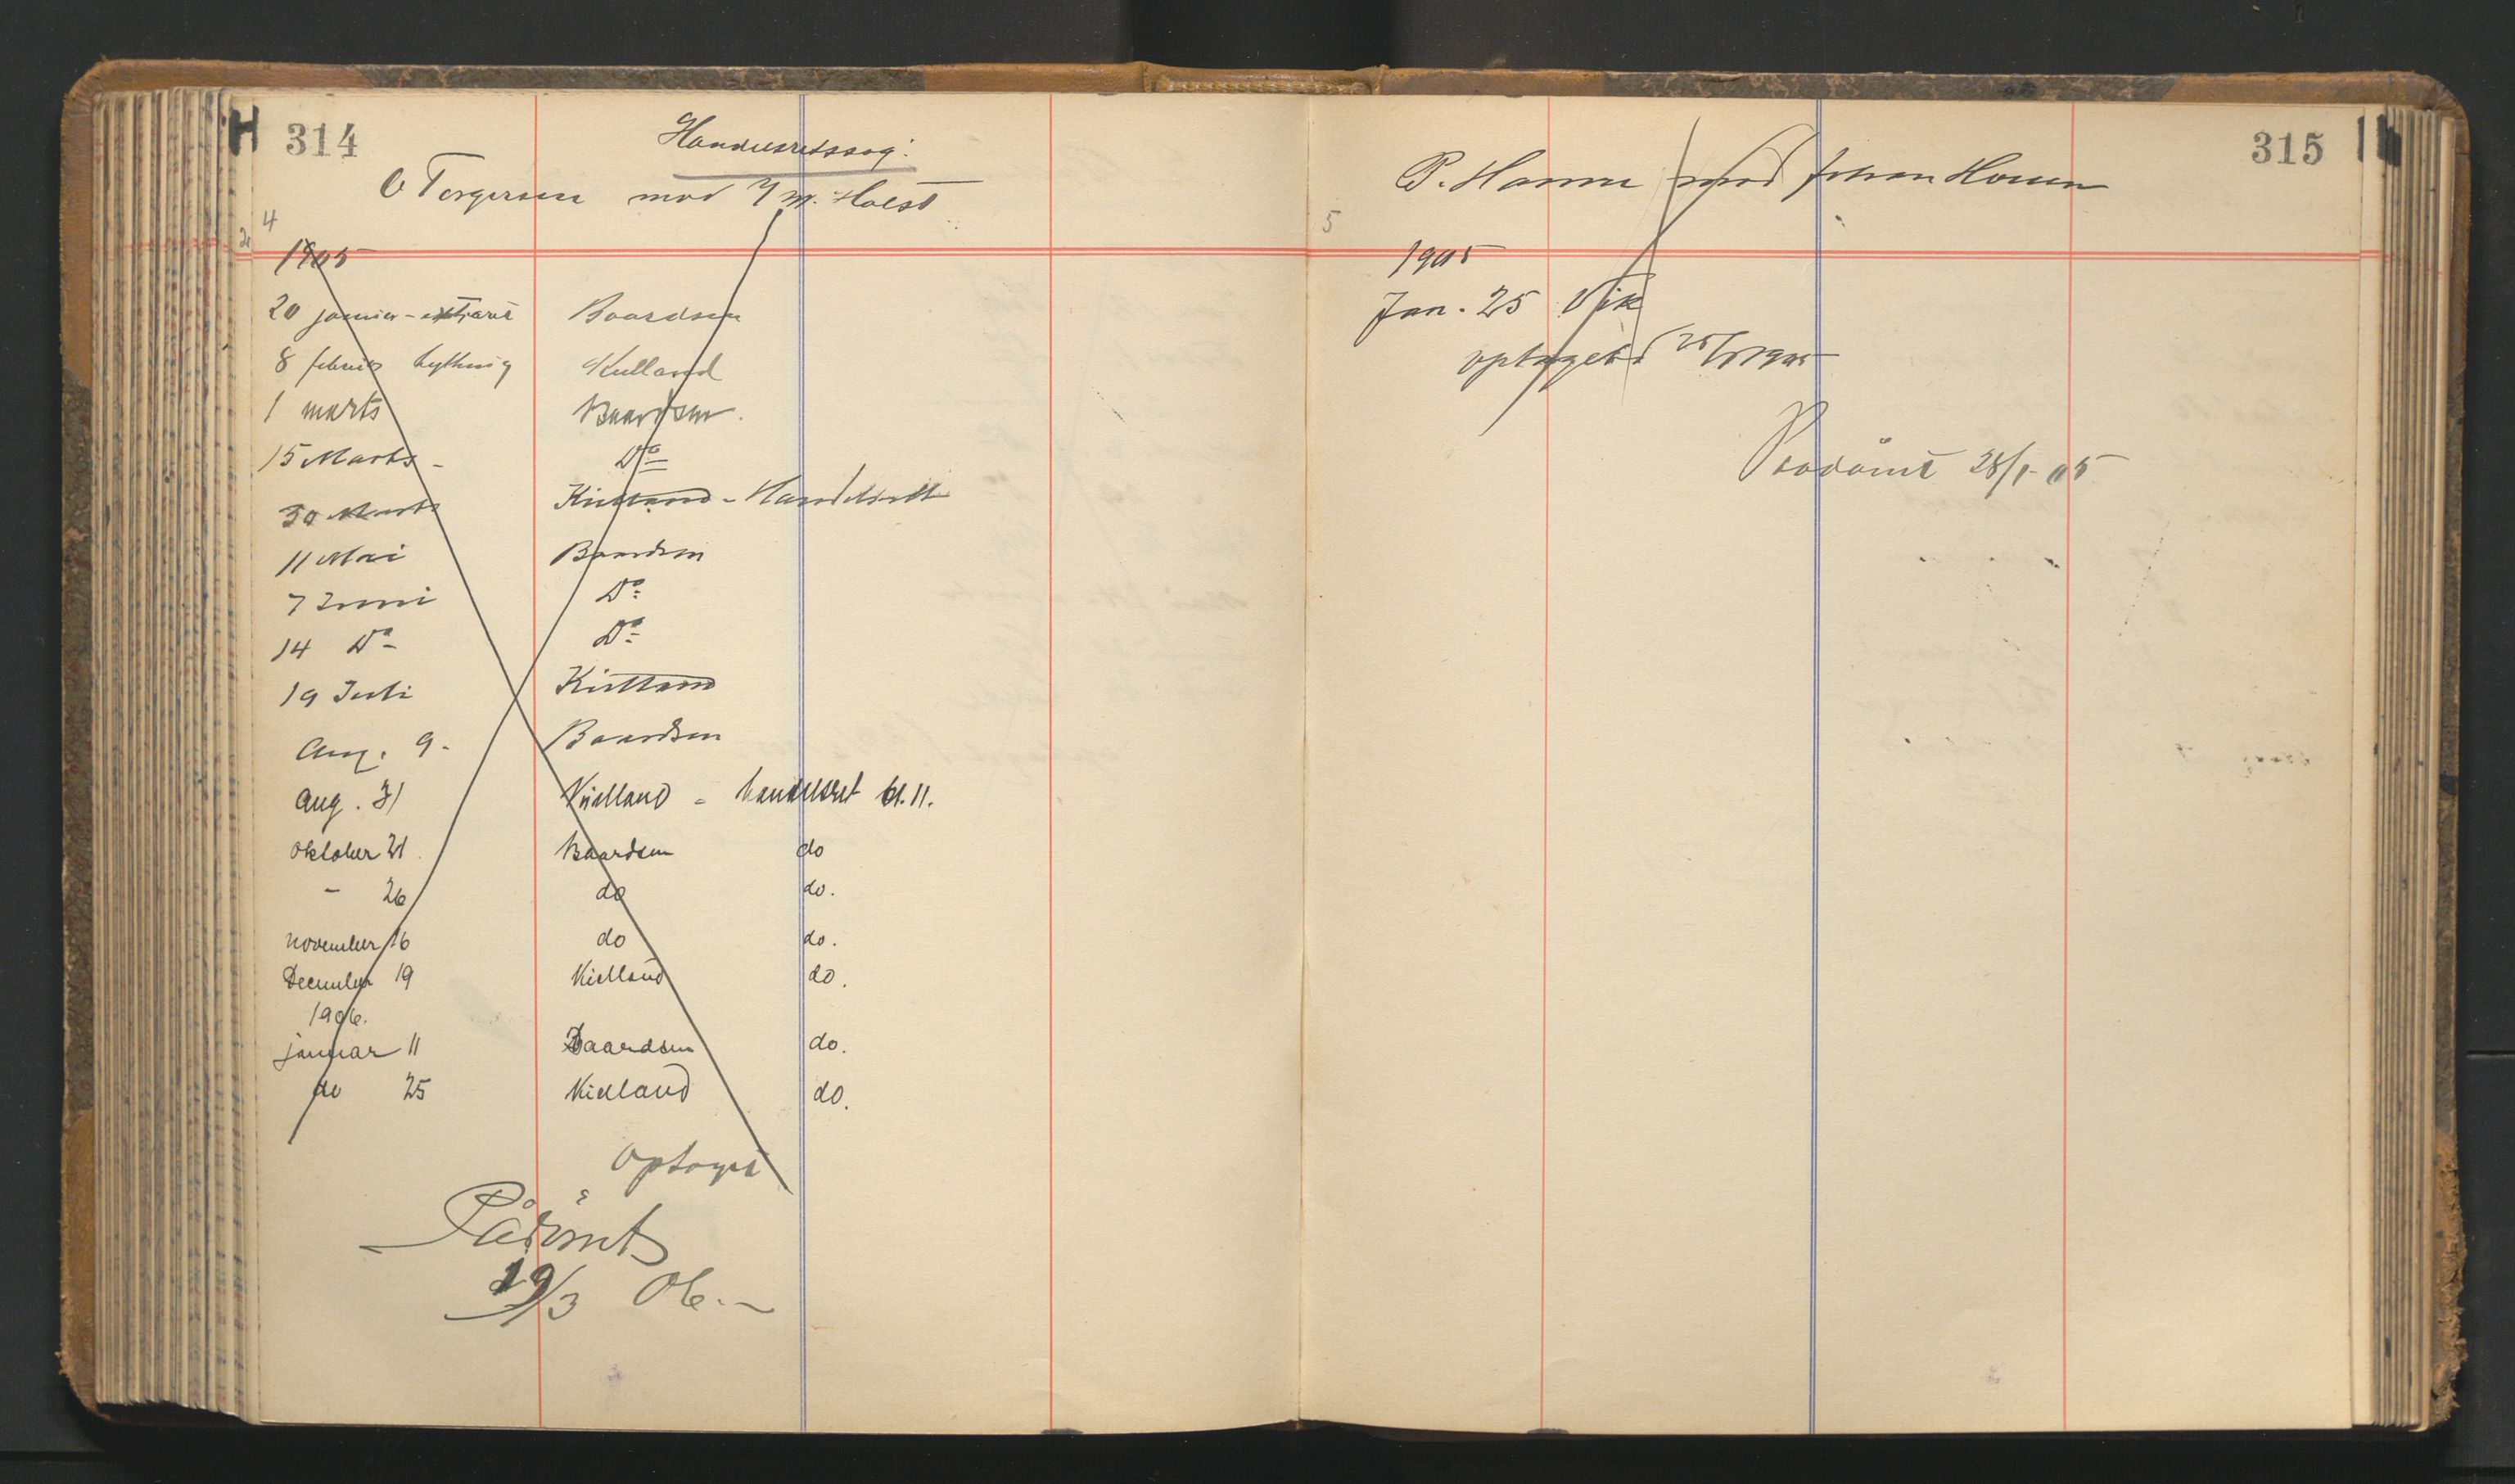 314
Handelsretssag:
O Torgersen mod I M. Holst
4
1905
20 januar - extraret Baardsen
8 februar Kielland
1 marts Baardsen.
15 Marts - Do
30 Marts Kielland - Handelsrett
11 Mai Baardsen
7 Juni Do
14 Do Do
19 Juli Kielland
Aug. 9. Baardsen
Aug. 31 Kielland - handelsret kl. 11.
Oktober 21 Baardsen do
- 26 do do.
November 16 do do.
December 19 Kielland do.
1906.
januar 11 Baardsen do.
do 25 Kielland do.
optaget
Pådømt
19/3 06.-
315
P. Hansen mod Johan Hansen
5
1905
Jan. 25 Vik
optaget 25/1 1905
Paadømt 28/1-05